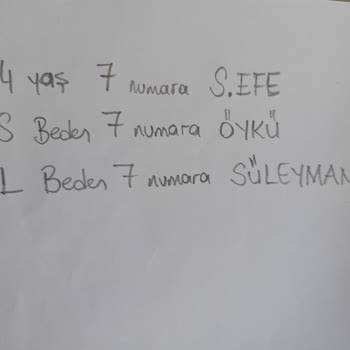 4 yaş 7 numara S.EFE
S Beden 7 numara ÖYKÜ
L Beden 7 numara SÜLEYMAN